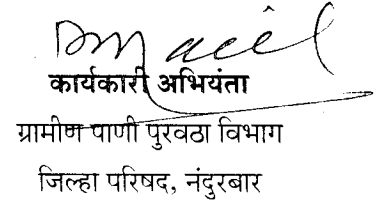 कार्यकारी अभियंता
ग्रामीण पाणी पुरवठा विभाग
जिल्हा परिषद, नंदुरबार